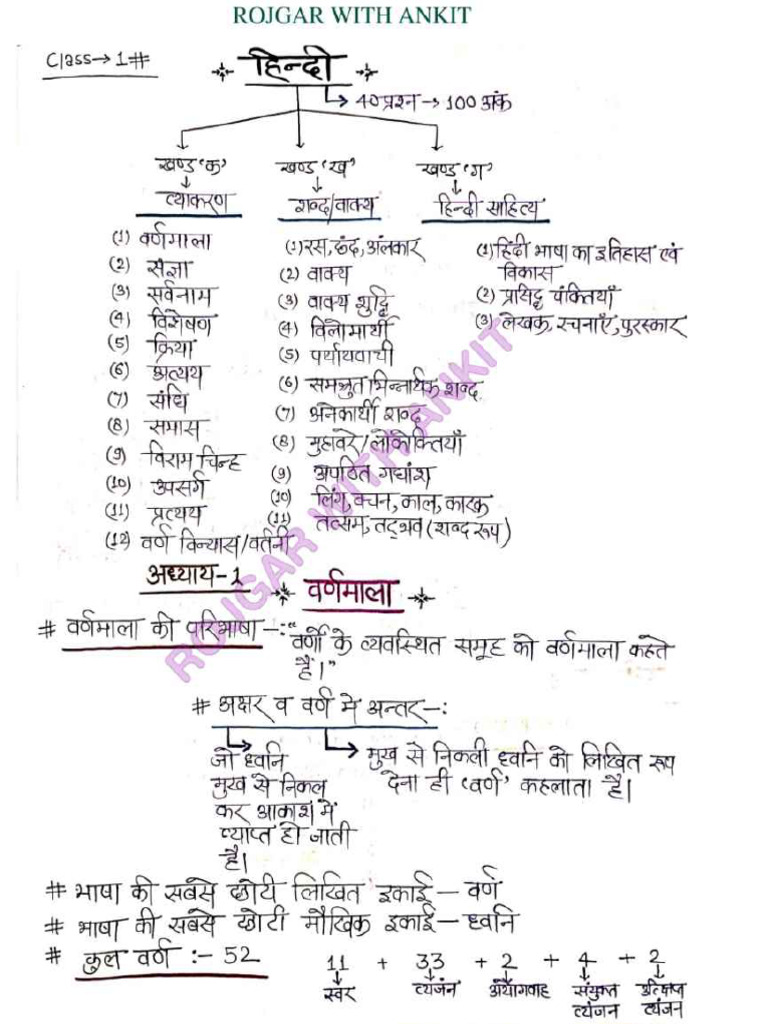 ROJGAR WITH ANKIT
Class→1#
हिन्दी
→ 40 प्रश्न → 100 अंक
खण्ड 'क'
व्याकरण
(1) वर्णमाला
(2) संज्ञा
(3) सर्वनाम
(4) विशेषण
(5) क्रिया
(6) अव्यय
(7) संधि
(8) समास
(9) विराम चिन्ह
(10) उपसर्ग
(11) प्रत्यय
(12) वर्ण विन्यास/वर्तनी
खण्ड 'ख'
शब्द/वाक्य
(1) रस, छंद, अंलकार
(2) वाक्य
(3) वाक्य शुद्धि
(4) विलोमार्थी
(5) पर्यायवाची
(6) समश्रुत भिन्नार्थक शब्द
(7) अनेकार्थी शब्द
(8) मुहावरे/लोकोक्तियाँ
(9) अपठित गद्यांश
(10) लिंग, वचन, काल, कारक
(11) तत्सम, तद्भव (शब्द रूप)
खण्ड 'ग'
हिन्दी साहित्य
(1) हिंदी भाषा का इतिहास एवं
विकास
(2) प्रसिद्ध पंक्तियाँ
(3) लेखक, रचनाएँ, पुरस्कार
ROJGAR WITH ANKIT
अध्याय-1 वर्णमाला
# वर्णमाला की परिभाषा -: "वर्णों के व्यवस्थित समूह को वर्णमाला कहते
हैं।"
# अक्षर व वर्ण में अन्तर -:
जो ध्वनि
मुख से निकल
कर आकाश में
व्याप्त हो जाती
है।
मुख से निकली ध्वनि को लिखित रूप
देना ही 'वर्ण' कहलाता है।
# भाषा की सबसे छोटी लिखित इकाई - वर्ण
# भाषा की सबसे छोटी मौखिक इकाई - ध्वनि
# कुल वर्ण :- 52 11 + 33 + 2 + 4 + 2
स्वर व्यंजन अयोगवाह संयुक्त उत्क्षिप्त
व्यंजन व्यंजन